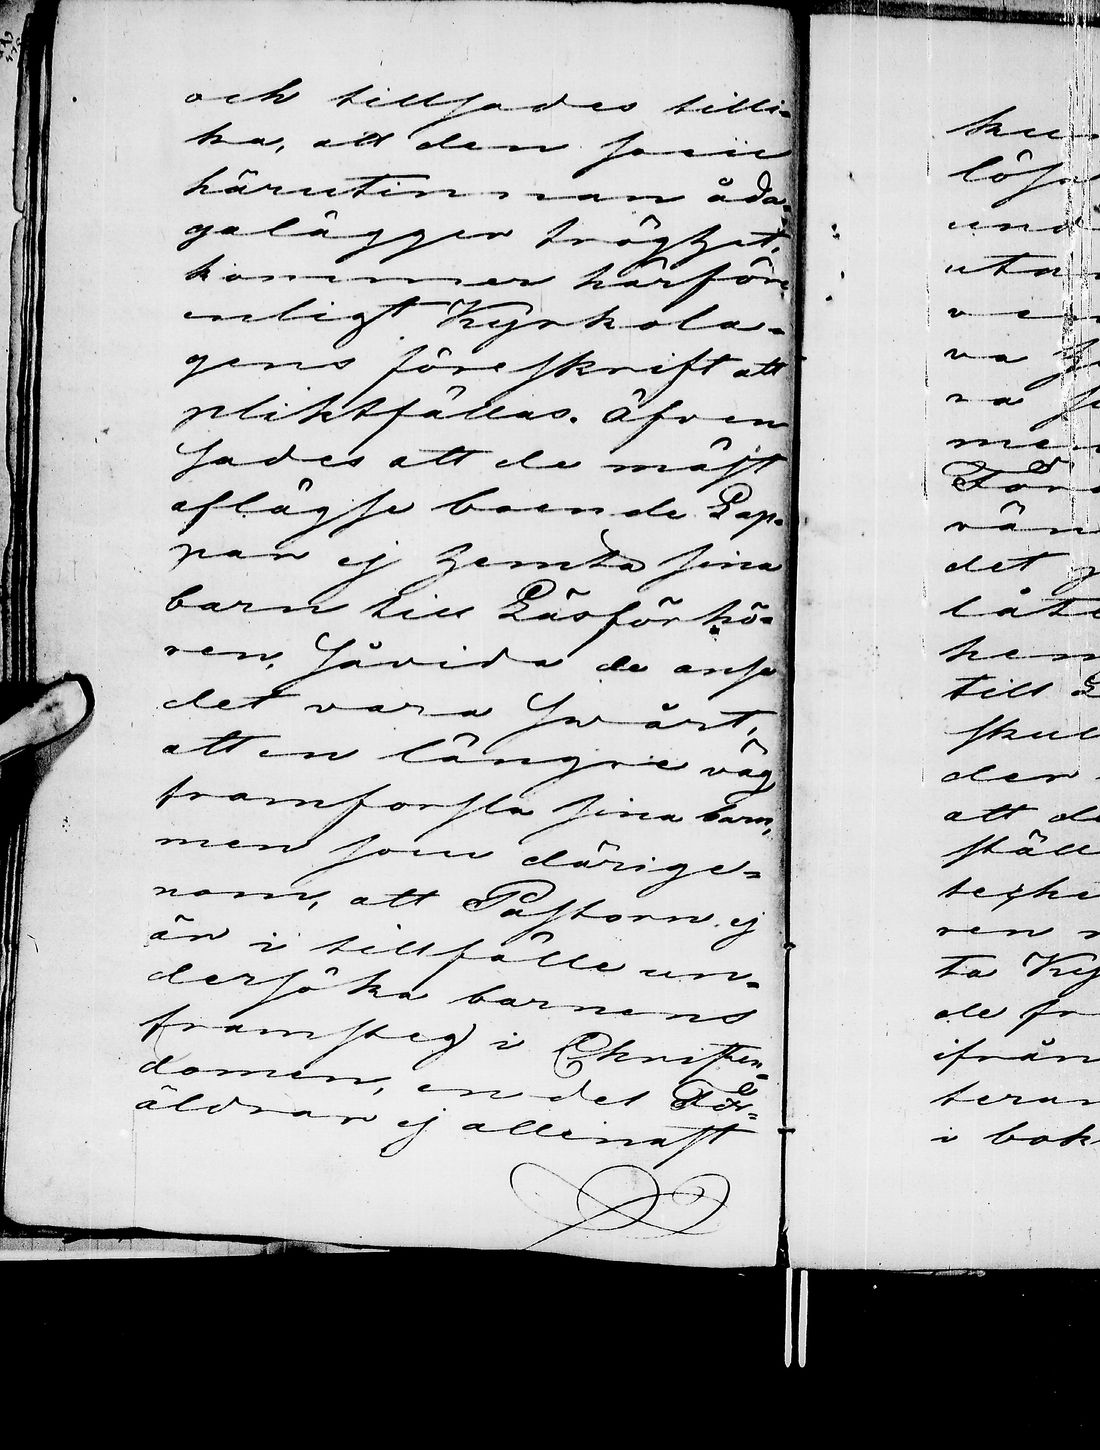 och tillsades tilli-
ka, att den som
härutinnan åda-
galägger tröghet,
kommer härföre
enligt Kyrkola-
gens föreskrift att
pliktfällas. Äfven
sades att de mäst
aflägse boende Lap-
par ej hemta sina
barn till Läsförhö-
ren, såvida de anse
det vara swårt,
att en längre väg
framforsla sina barn,
men som därige-
nom, att Pastorn ej
är i tillfälle un-
dersöka barnens
framsteg i Christen-
domen, en del För-
äldrar ej allenast
kun
löse
und
uta
ven
va
ra
men
Förä
vän
det
låte
hem
till L
skul
der
att de
ställ
ren
ta Ky
de fr
ifrån
teran
i bok